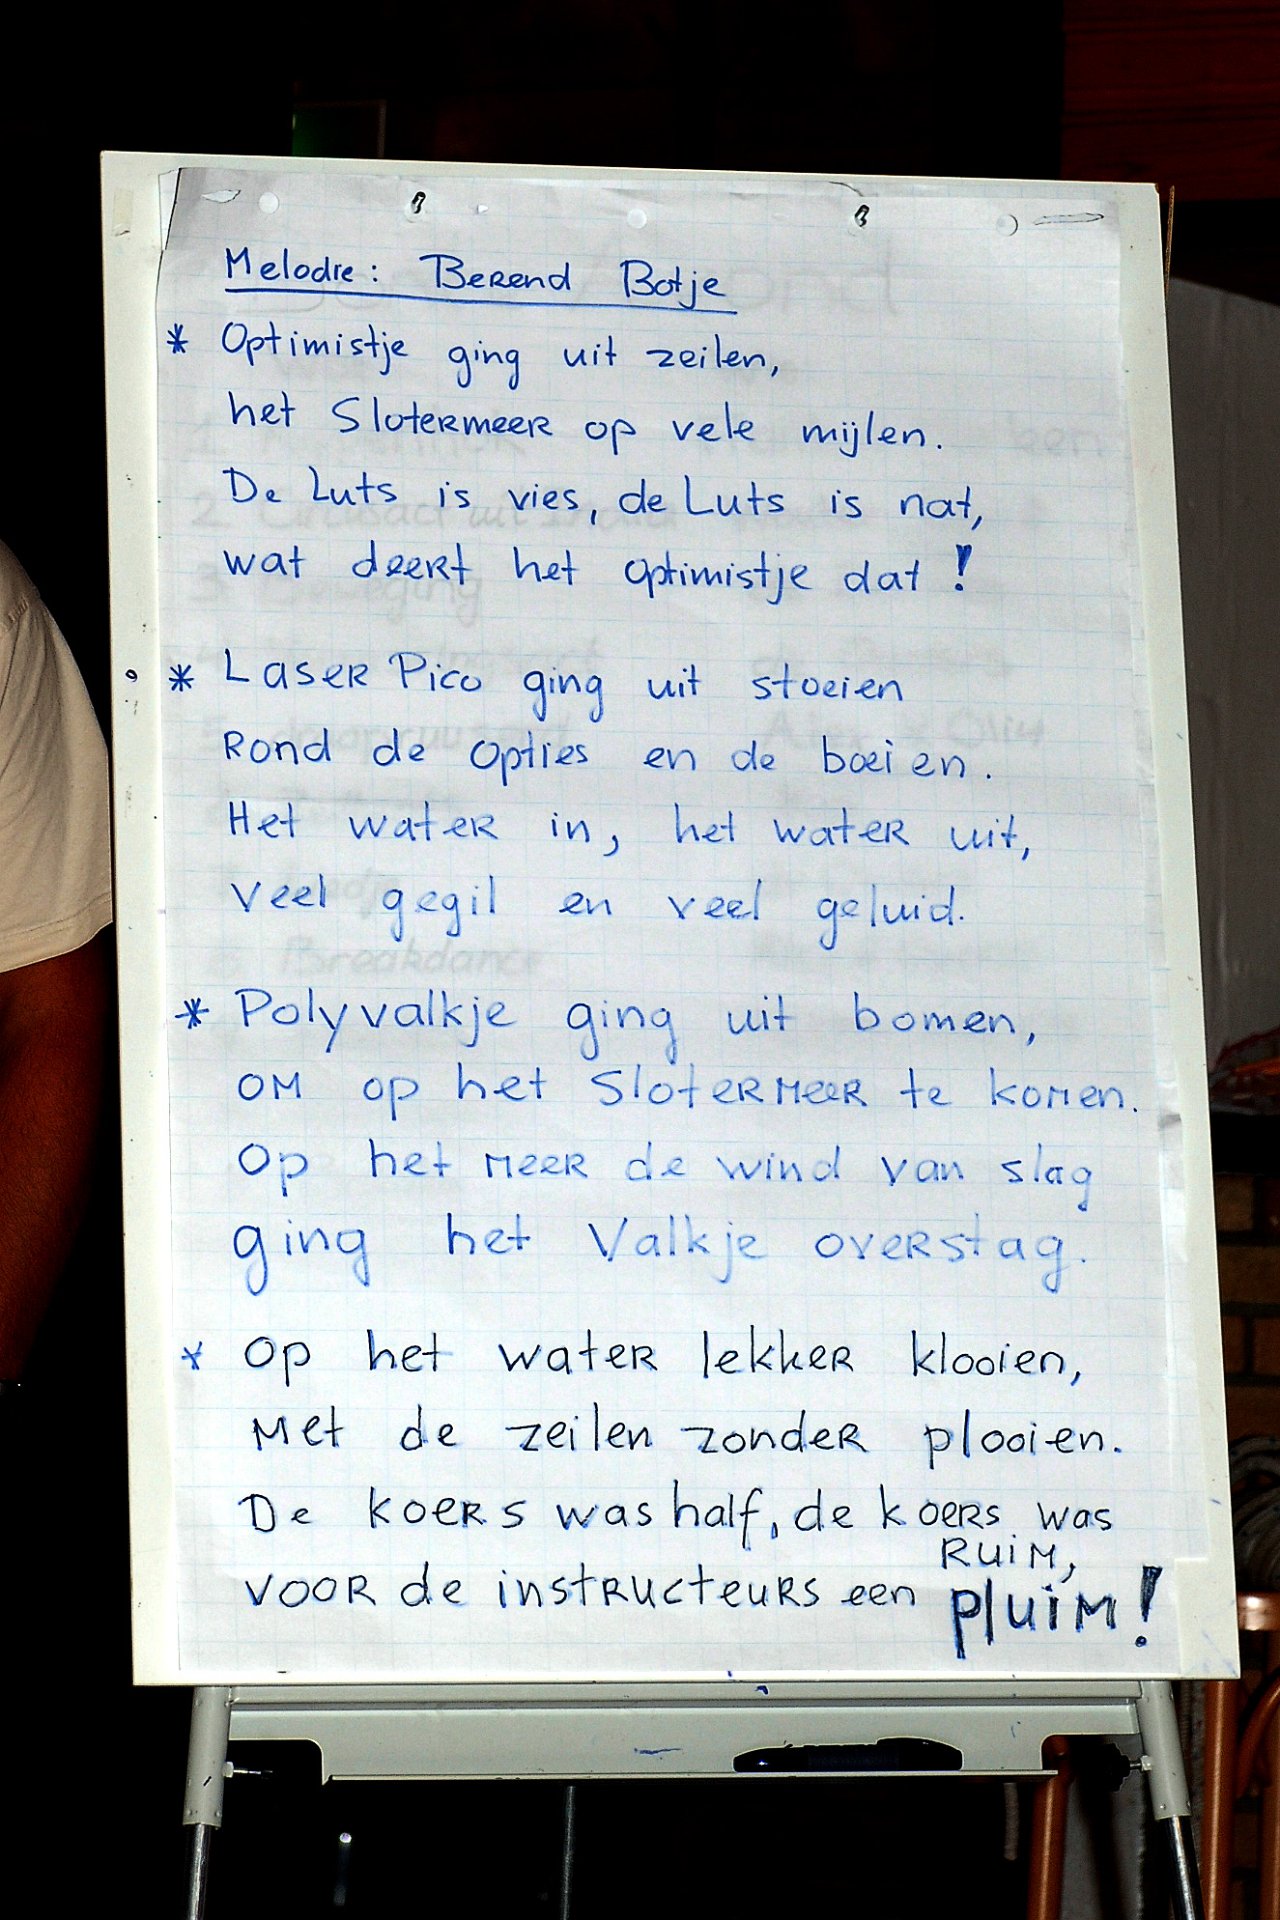 Melodie: Berend Botje
* Optimistje ging uit zeilen,
het Slotermeer op vele mijlen.
De Luts is vies, de Luts is nat,
wat deert het optimistje dat!
* Laser Pico ging uit stoeien
rond de opties en de boeien.
Het water in, het water uit,
veel gegil en veel geluid.
* Polyvalkje ging uit bomen,
om op het Slotermeer te komen.
Op het meer de wind van slag
ging het Valkje overstag.
* Op het water lekker klooien,
met de zeilen zonder plooien.
De koers was half, de koers was
ruim,
voor de instructeurs een pluim!
Breakdance